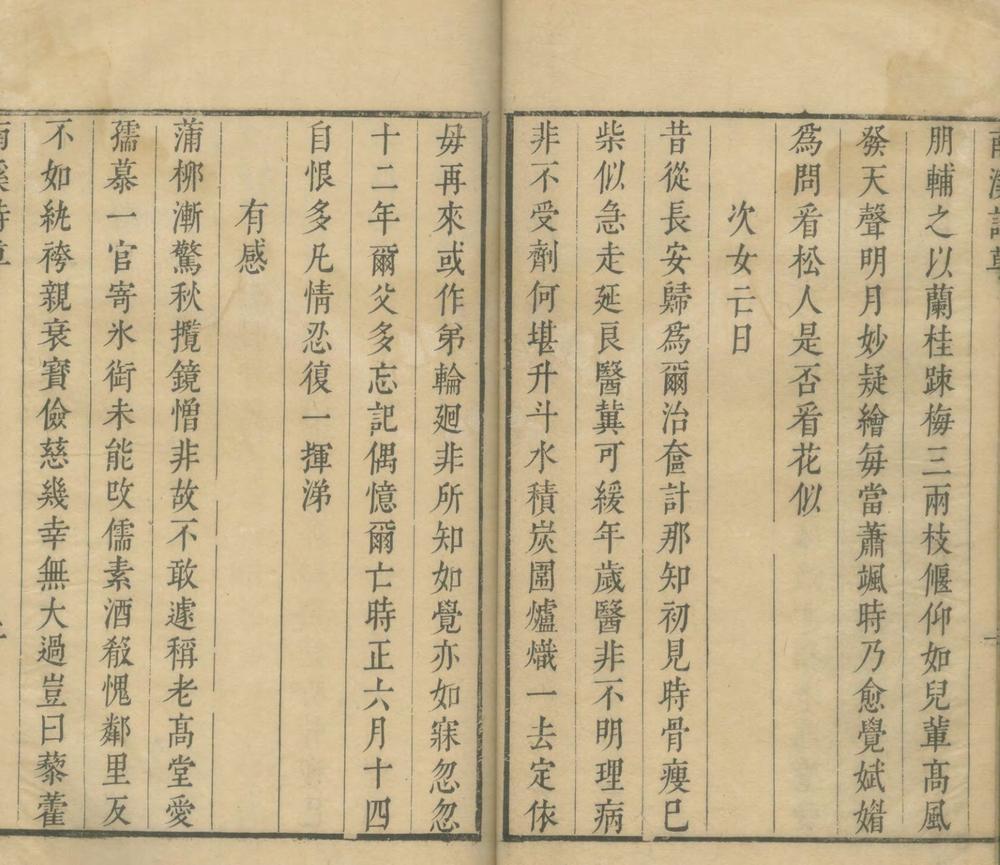 朋輔之以蘭桂踈梅三兩枝偃仰如兒輩髙風
發天聲明月妙疑繪每當蕭颯時乃愈覺娬媚
爲問看松人是否看花似
次女亡日
昔從長安歸爲爾治奩計那知初見時骨瘦已
柴似急走延良醫冀可緩年歲醫非不明理病
非不受劑何堪升斗水積炭圍爐熾一去定依
毋再來或作弟輪廻非所知如覺亦如寐忽忽
十二年爾父多忘記偶憶爾亡時正六月十四
自恨多凡情忍復一揮涕
有感
蒲桺漸驚秋攬鏡憎非故不敢遽稱老髙堂愛
孺慕一官寄氷銜未能改儒素酒殽愧鄰里反
不如紈袴親衰寶儉慈幾幸無大過豈曰藜藿